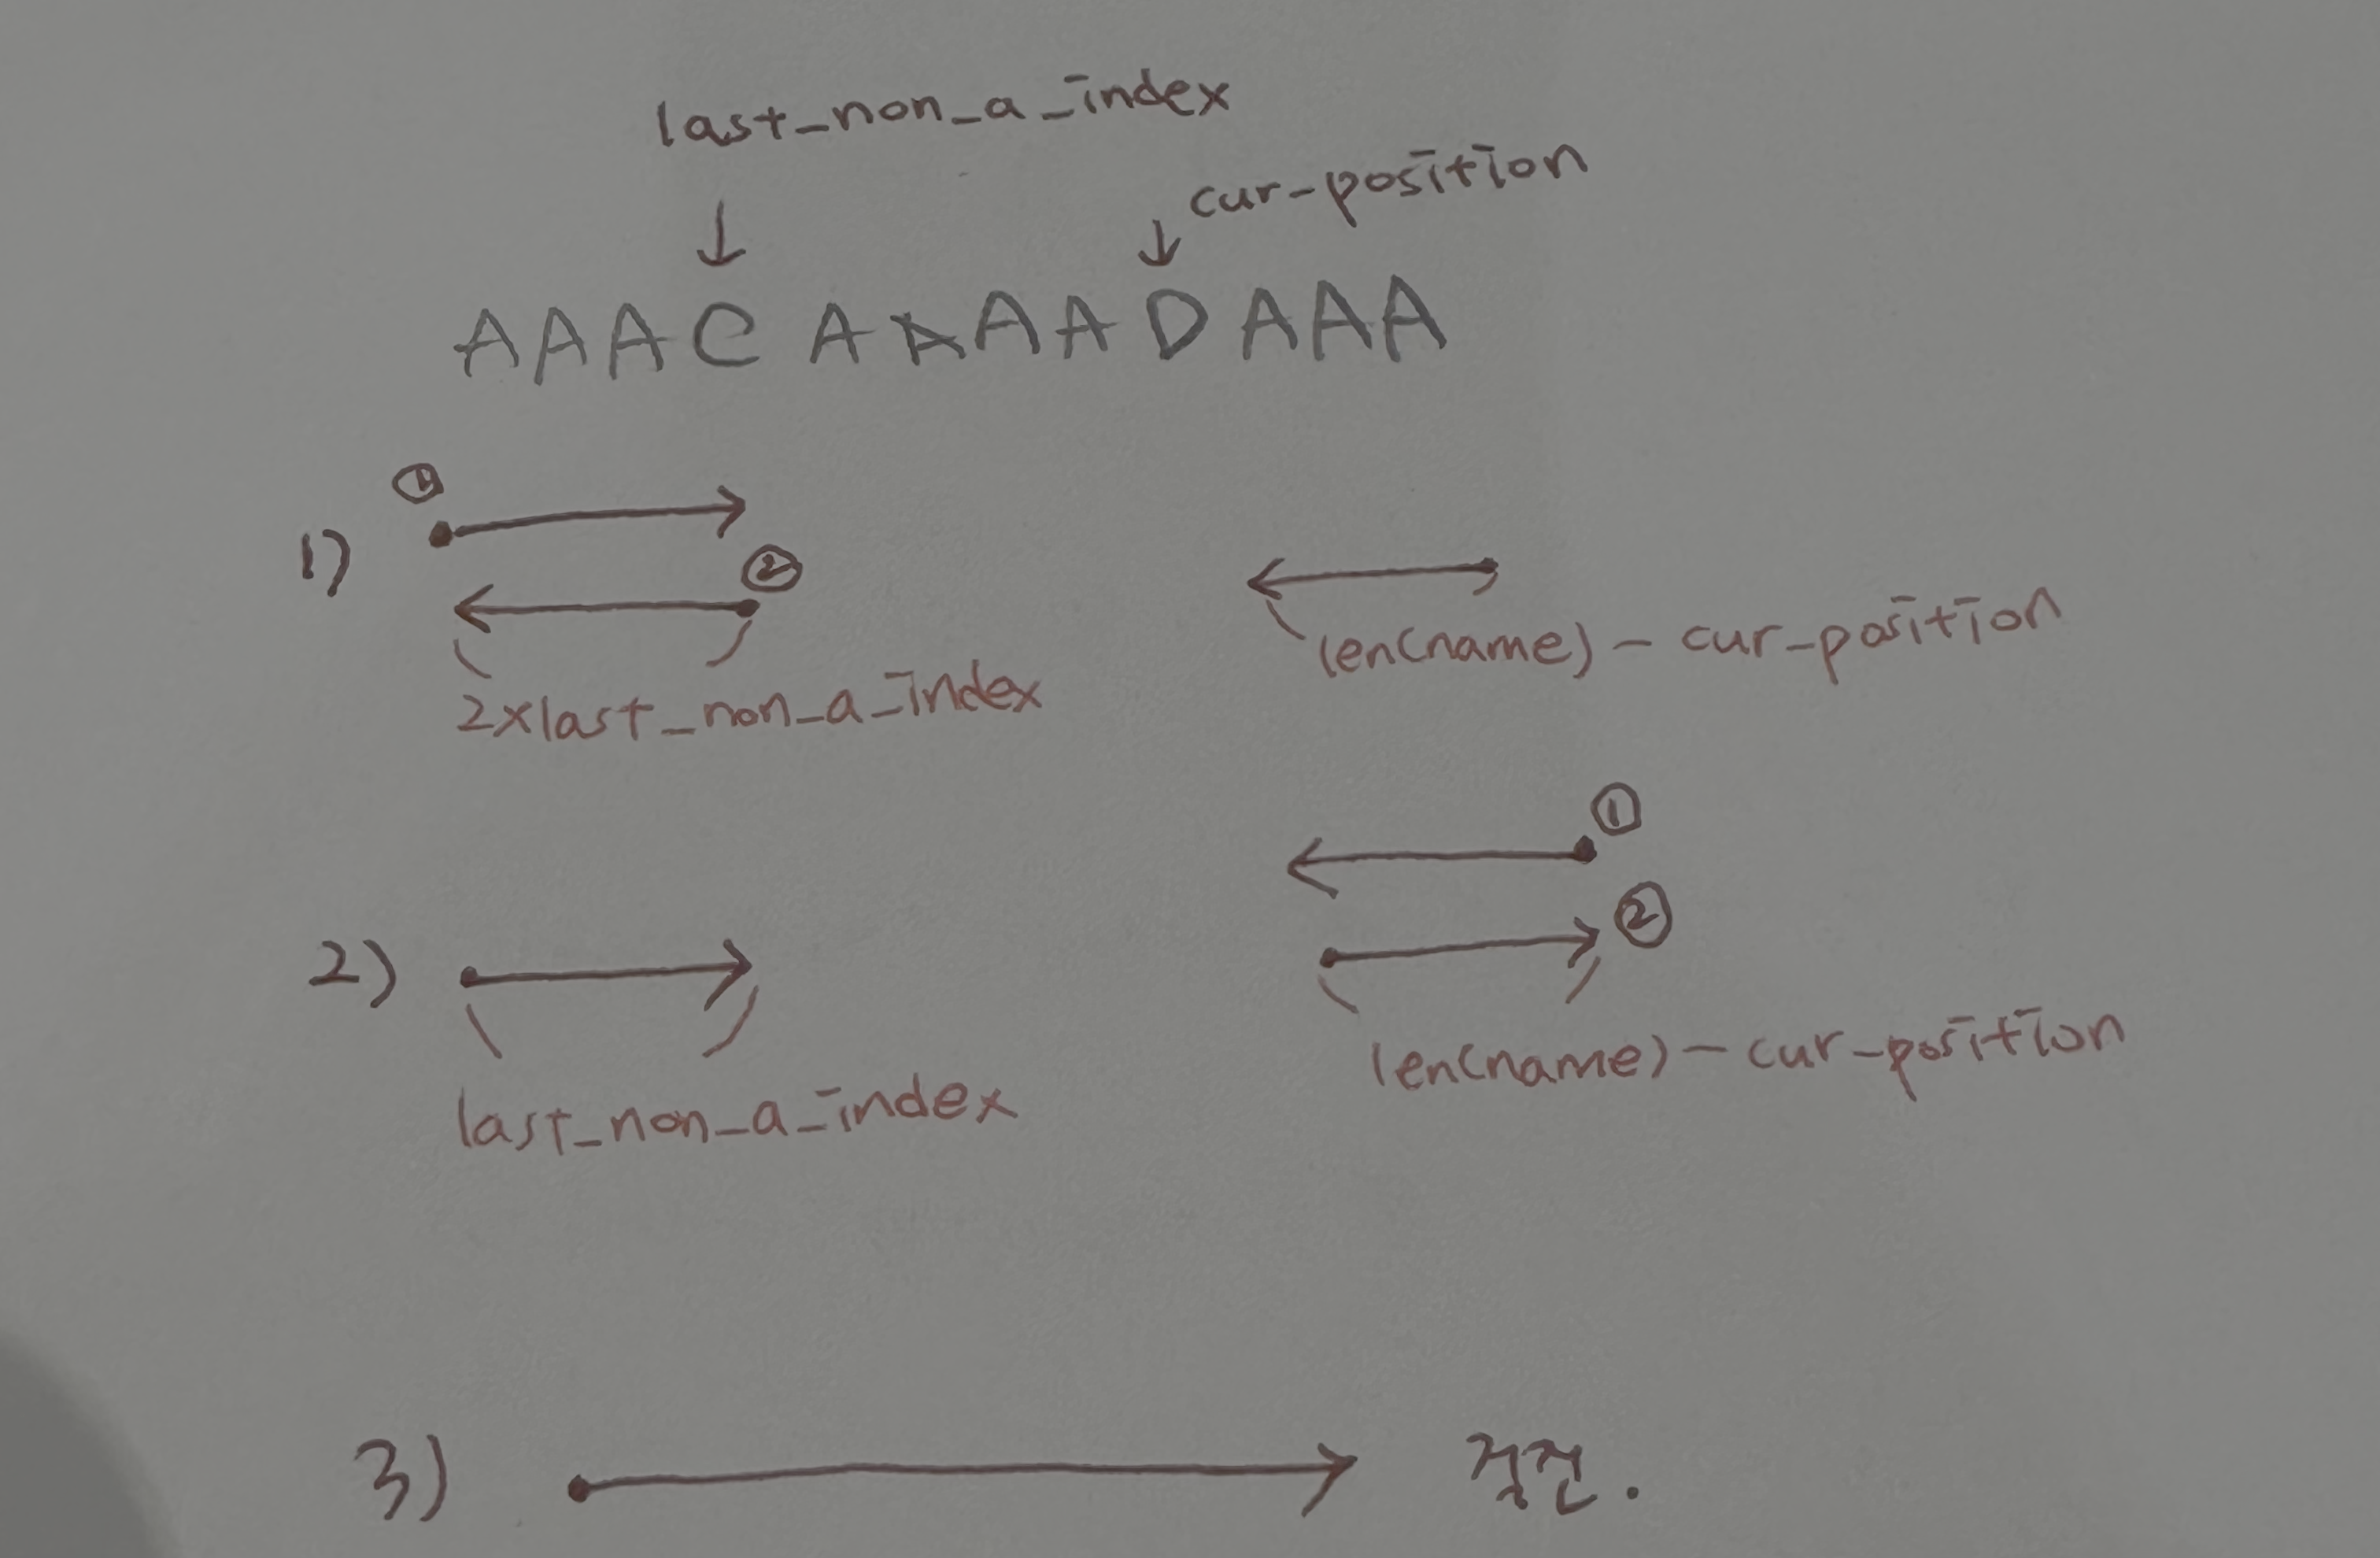 last_non_a_index
↓ cur-position
↓
AAAC AAAA DAAA
①
1) ②
2xlast_non_a_index
len(name) - cur-position
①
2) ②
last_non_a_index
len(name) - cur-position
3) 직진.